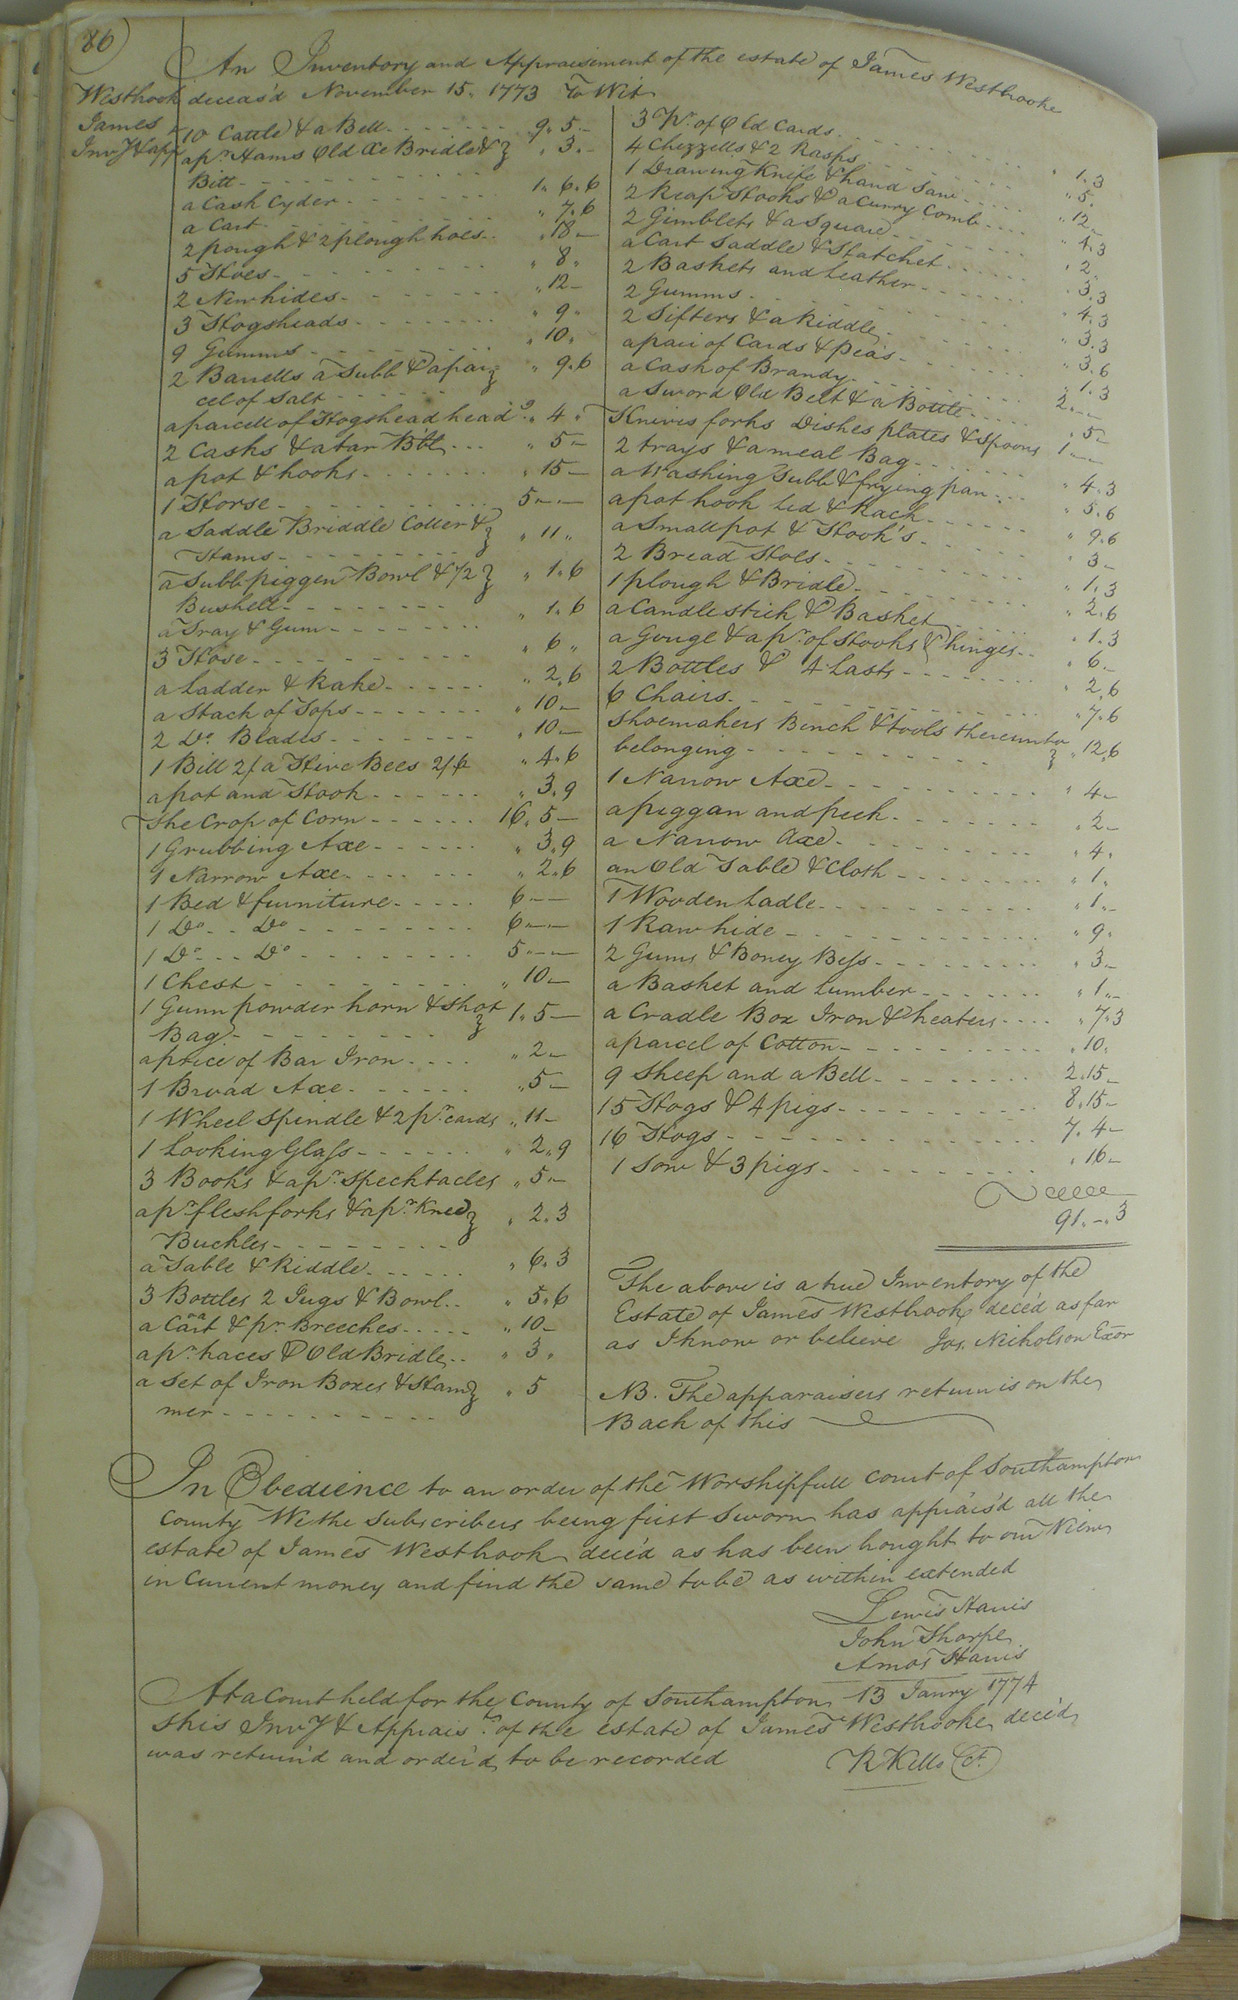 86
An Inventory and Appraisement of the estate of James Westbrooke
Westbrook
James
InvY & app
deceas'd November 15. 1773 To Wit
10 Cattle & a Bell 9. 5. -
a pr. Hams Old Axe Bridle & " 3. -
Bitt
a Cask Cyder 1. 6. 6
a Cart " 7. 6
2 plough & 2 plough hoes " 18 -
5 Hoes " 8 "
2 New hides " 12 -
3 Hogsheads " 9 "
9 Gumms " 10 "
2 Barrells a Tubb & a par " 9. 6
cel of Salt
a parcell of Hogshead heads " 4 "
2 Casks & a tar Bbl " 5 -
a pot & hooks " 15 -
1 Horse 5 - -
a Saddle Briddle Coller & " 11 "
Hams
a Tubb piggen Bowl & 1/2 " 1. 6
Bushell
a Tray & Gum " 1. 6
3 Hose " 6 "
a Ladder & Rake " 2. 6
a Stack of Tops " 10 -
2 Do. Blades " 10 -
1 Bill 2/ a Hive Bees 2/6 " 4. 6
a pot and Hook " 3. 9
The Crop of Corn 16. 5 -
1 Grubbing Axe " 3. 9
1 Narrow Axe " 2. 6
1 Bed & furniture 6 - -
1 Do Do 6 - -
1 Do Do 5 - -
1 Chest " 10 -
1 Gunn powder horn & Shot 1. 5 -
Bag
a peice of Bar Iron " 2 -
1 Broad Axe " 5 -
1 Wheel Spindle & 2 pr. cards " 11 -
1 Looking Glass " 2. 9
3 Books & a pr. Specktacles " 5 -
a pr. flesh forks & a pr. Knee " 2. 3
Buckles
a Table & Riddle " 6. 3
3 Bottles 2 Jugs & Bowl " 5. 6
a & pr. Breeches " 10 -
a pr. haces & Old Bridle " 3 "
a Set of Iron Boxes & Ham " 5
mer
3 Pr. of Old Cards " 1. 3
4 Chezzells & 2 Rasps " 5.
1 Drawing Knife & hand Saw " 12 -
2 Reap Hooks & a Curry Comb " 4. 3
2 Gimblets & a Square " 2.
a Cart Saddle & Hatchet " 3. 3
2 Baskets and Leather " 4. 3
2 Gumms " 3. 3
2 Sifters & a Riddle " 3. 6
a pair of Cards & Peas " 1. 3
a Cask of Brandy 2. - -
a Sword Old Belt & a Bottle " 5 -
Knives forks Dishes plates & spoons 1 - -
2 trays & a meal Bag " 4. 3
a Washing Tubb & frying pan " 5. 6
a pot hook Lid & Rack " 9. 6
a Small pot & Hook's " 3 -
2 Bread Hoes " 1. 3
1 plough & Bridle " 2. 6
a Candlestick & Basket " 1. 3
a Gouge & a pr. of Hooks & hinges " 6 -
2 Bottles & 4 Lasts " 2. 6
6 Chairs " 7. 6
Shoemakers Bench & tools thereunto " 12. 6
belonging
1 Narrow Axe " 4 -
a piggan and peck " 2 -
a Narrow Axe " 4.
an Old Table & Cloth " 1.
1 Wooden Ladle " 1 -
1 Raw hide " 9.
2 Gums & Boney Bess " 3 -
a Basket and Lumber " 1 -
a Cradle Box Iron & heaters " 7. 3
a parcel of Cotton " 10.
9 Sheep and a Bell 2. 15 -
15 Hogs & 4 pigs 8. 15 -
16 Hogs 7. 4 -
1 Sow & 3 pigs " 16 -
91. -. 3
The above is a true Inventory of the
Estate of James Westbrook, dece'd as far
as I know or believe Jos. Nicholson Exor
NB. The apparaisers return is on the
Back of this
In Obedience to an order of the Worshipfull Court of Southampton
County We the Subscribers being first Sworn has apprais'd all the
estate of James Westbrook dece'd as has been bought to our View
in Current money and find the same to be as within extended
Lewis Harris
John Thorpe
Amos Harris
At a Court held for the County of Southampton 13 Janry 1774
This InvY & Appraismt. of the estate of James Westbrooke, dece'd
was return'd and order'd to be recorded R Kello Ct.